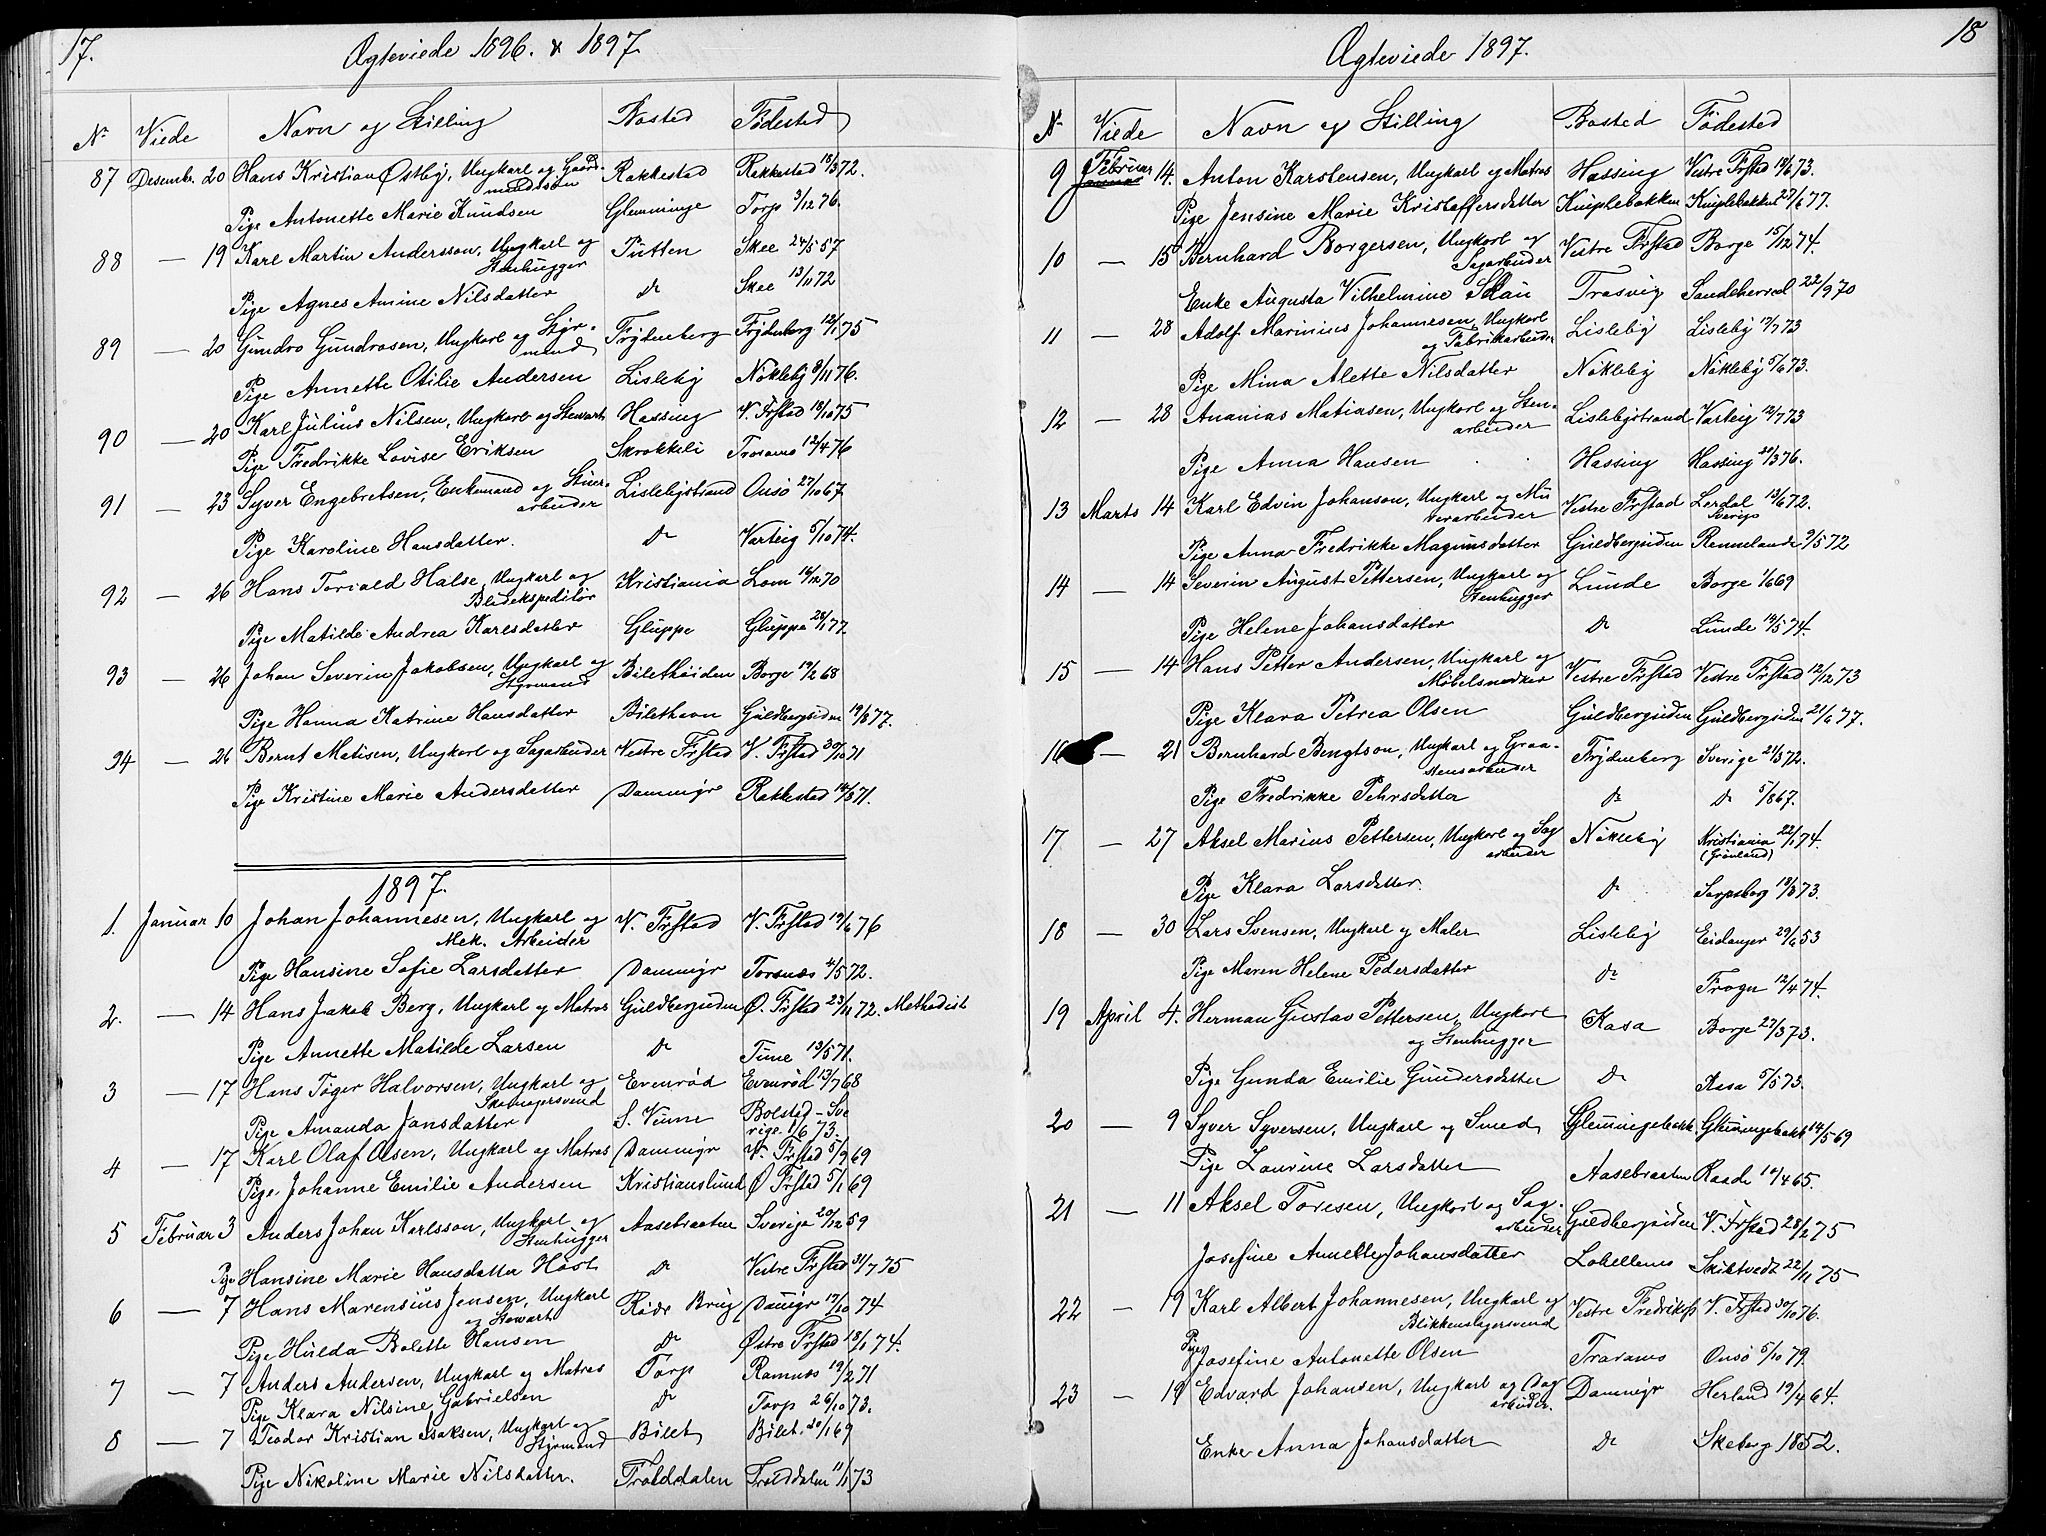 17.
Ægteviede 1896. & 1897.
Nr Viede Navn og Stilling Bosted Födested
87 Desembr. 20 Hans Kristian Østby, Ungkarl og Gaard- Rakkestad Rakkestad 18/3 72.
mandssön
Pige Antonette Marie Knudsen Glemminge Torp 3/12 76.
88 — 19 Karl Martin Andersson, Ungkarl og Putten Skee 24/5 57
Stenhugger
Pige Agnes Amine Nilsdatter do Skee 13/11 72
89 — 20 Gundro Gundrosen, Ungkarl og Styr- Frydenberg Frydenberg 12/1 75
mand
Pige Annette Otilie Andersen Lisleby Nökleby 8/11 76.
90 — 20 Karl Julius Nilsen, Ungkarl og Stewart Hassing V. Frstad 18/10 75
Pige Fredrikke Lovise Eriksen Skrokkeli Torsnæs 12/4 76
91 — 23 Syver Engebretsen, Enkemand og Stuer- Lislebystrand Onsö 27/10 67
arbeider
Pige Karoline Hansdatter. do Varteig 5/10 74.
92 — 26 Hans Torvald Halse, Ungkarl og Kristiania Lom 16/12 70
Bladekspeditör
Pige Matilde Andrea Karlsdatter Gluppe Gluppe 28/1 77.
93 — 26 Johan Severin Jakobsen, Ungkarl og Bilethöiden Borge 19/2 68
Styrmand
Pige Hanna Katrine Hansdatter Bilethavn Guldbergsiden 19/8 77.
94 — 26 Bernt Matisen, Ungkarl og Sagarbeider Vestre Frstad V. Frstad 30/10 71
Pige Kristine Marie Andersdatter Dammyr Rakkestad 16/8 71.
1897.
1. Januar 10 Johan Johannesen, Ungkarl og V. Frstad V. Frstad 19/6 76
Mek. Arbeider
Pige Hansine Sofie Larsdatter Dammyr Torsnæs 4/5 72.
2. — 14 Hans Jakob Berg, Ungkarl og Matros Guldbergsiden Ø. Frstad 23/11 72. Methodist
Pige Annette Matilde Larsen do Tune 13/5 71.
3 — 17 Hans Töger Halvorsen, Ungkarl og Evenröd Evenröd 13/7 68
Skomagersvend
Pige Amanda Jansdatter S. Viune Bolsted - Sve
rige. 1/6 73.
4 — 17 Karl Olaf Olsen, Ungkarl og Matros Dammyr V. Frstad 5/9 69
Pige Johanne Emilie Andersen Kristianslund Ø Frstad 5/1 69
5 Februar 3 Anders Johan Karlsson, Ungkarl og Aasebraaten Sverige 20/12 59
Stenhugger
Pige Hansine Marie Hansdatter Höst do Vestre Frstad 31/7 75
6 — 7 Hans Marensius Jensen, Ungkarl Röde Brug Damyr 17/10 74
og Stewart
Pige Hulda Bolette Hansen do Østre Frstad 18/1 74.
7 — 7 Anders Andersen, Ungkarl og Matros Torp Ramnæs 19/2 71
Pige Klara Nilsine Gabrielsen do Torp 26/10 73.
8 — 7 Teodor Kristian Isaksen, Ungkarl og Bilet Bilet 20/1 69
Styrmand
Pige Nikoline Marie Nilsdatter. Trolddalen Trolddalen 11/1 73
18
Ægteviede 1897.
N Viede Navn og Stilling Bosted Födested
9 Februar 14. Anton Karstensen, Ungkarl og Matros Hassing Vestre Frstad 18/6 73.
Pige Jensine Marie Kristoffersdatter Kniplebakken Kniplebakken 23/6 77.
10 — 15 Bernhard Borgersen, Ungkarl og Vestre Frstad Borge 15/12 74.
Sagarbeider
Enke Augusta Vilhelmine Skau Trosvig Sandeherred 22/9 70
11 — 28 Adolf Marinius Johannesen, Ungkarl Lisleby Lisleby 17/7 73
og Fabrikarbeider
Pige Mina Alette Nilsdatter Nökleby Nökleby 5/6 73.
12 — 28 Ananias Matiasen, Ungkarl og Sten- Lislebystrand Varteig 12/7 73
arbeider
Pige Anna Hansen Hassing Hassing 29/3 76.
13 Marts 14 Karl Edvin Johanson, Ungkarl og Mu Vestre Frstad Lerdal 13/6 72.
rerarbeider Sverige
Pige Anna Fredrikke Magnusdatter Guldbergsiden Rennelanda 9/5 72
14 — 14 Severin August Pettersen, Ungkarl og Lunde Borge 1/6 69
Stenhugger
Pige Helene Johansdatter do Lunde 14/5 74.
15 — 14 Hans Petter Andersen, Ungkarl og Vestre Frstad Vestre Frstad 12/12 73
Möbelsnedker
Pige Klara Petrea Olsen Guldbergsiden Guldbergsiden 21/6 77.
16 — 21 Bernhard Bengtson, Ungkarl og Graa- Frydenberg Sverige 21/3 72.
stensarbeider
Pige Fredrikke Pehrsdatter do do 5/8 67.
17 — 27 Aksel Marius Pettersen, Ungkarl og Sag Nökleby Kristiania 22/1 74.
arbeider (Grönland)
Pige Klara Larsdatter. do Sarpsborg 18/8 73.
18 — 30 Lars Svensen, Ungkarl og Maler Lisleby Eidanger 29/6 53
Pige Maren Helene Pedersdatter do Frogn 12/4 74.
19 April 4. Herman Gustav Pettersen, Ungkarl Kasa Borge 27/3 73.
og Stenhugger
Pige Gunda Emilie Gundersdatter do Kasa 5/5 73.
20 — 9 Syver Syversen, Ungkarl og Smed Glemmingebakk. Glemmingebakk 14/5 69
Pige Laurine Larsdatter Aasebraaten Raade 10/4 65.
21 — 11 Aksel Toresen, Ungkarl og Sag- Guldbergsiden V. Frstad 28/2 75
arbeider
Josefine Annette Johansdatter Labellens Skibtvedt 22/11 75
22 — 19 Karl Albert Johannesen, Ungkarl og Vestre Fredrikst V. Frstad 30/10 76.
Blikkenslagersvend
Pige Josefine Antonette Olsen Traranæs Onsö 5/10 79.
23 — 19 Edvard Johansen, Ungkarl og Dag Dammyr Herland 19/4 64.
arbeider.
Enke Anna Johansdatter do Skeberg 1852.